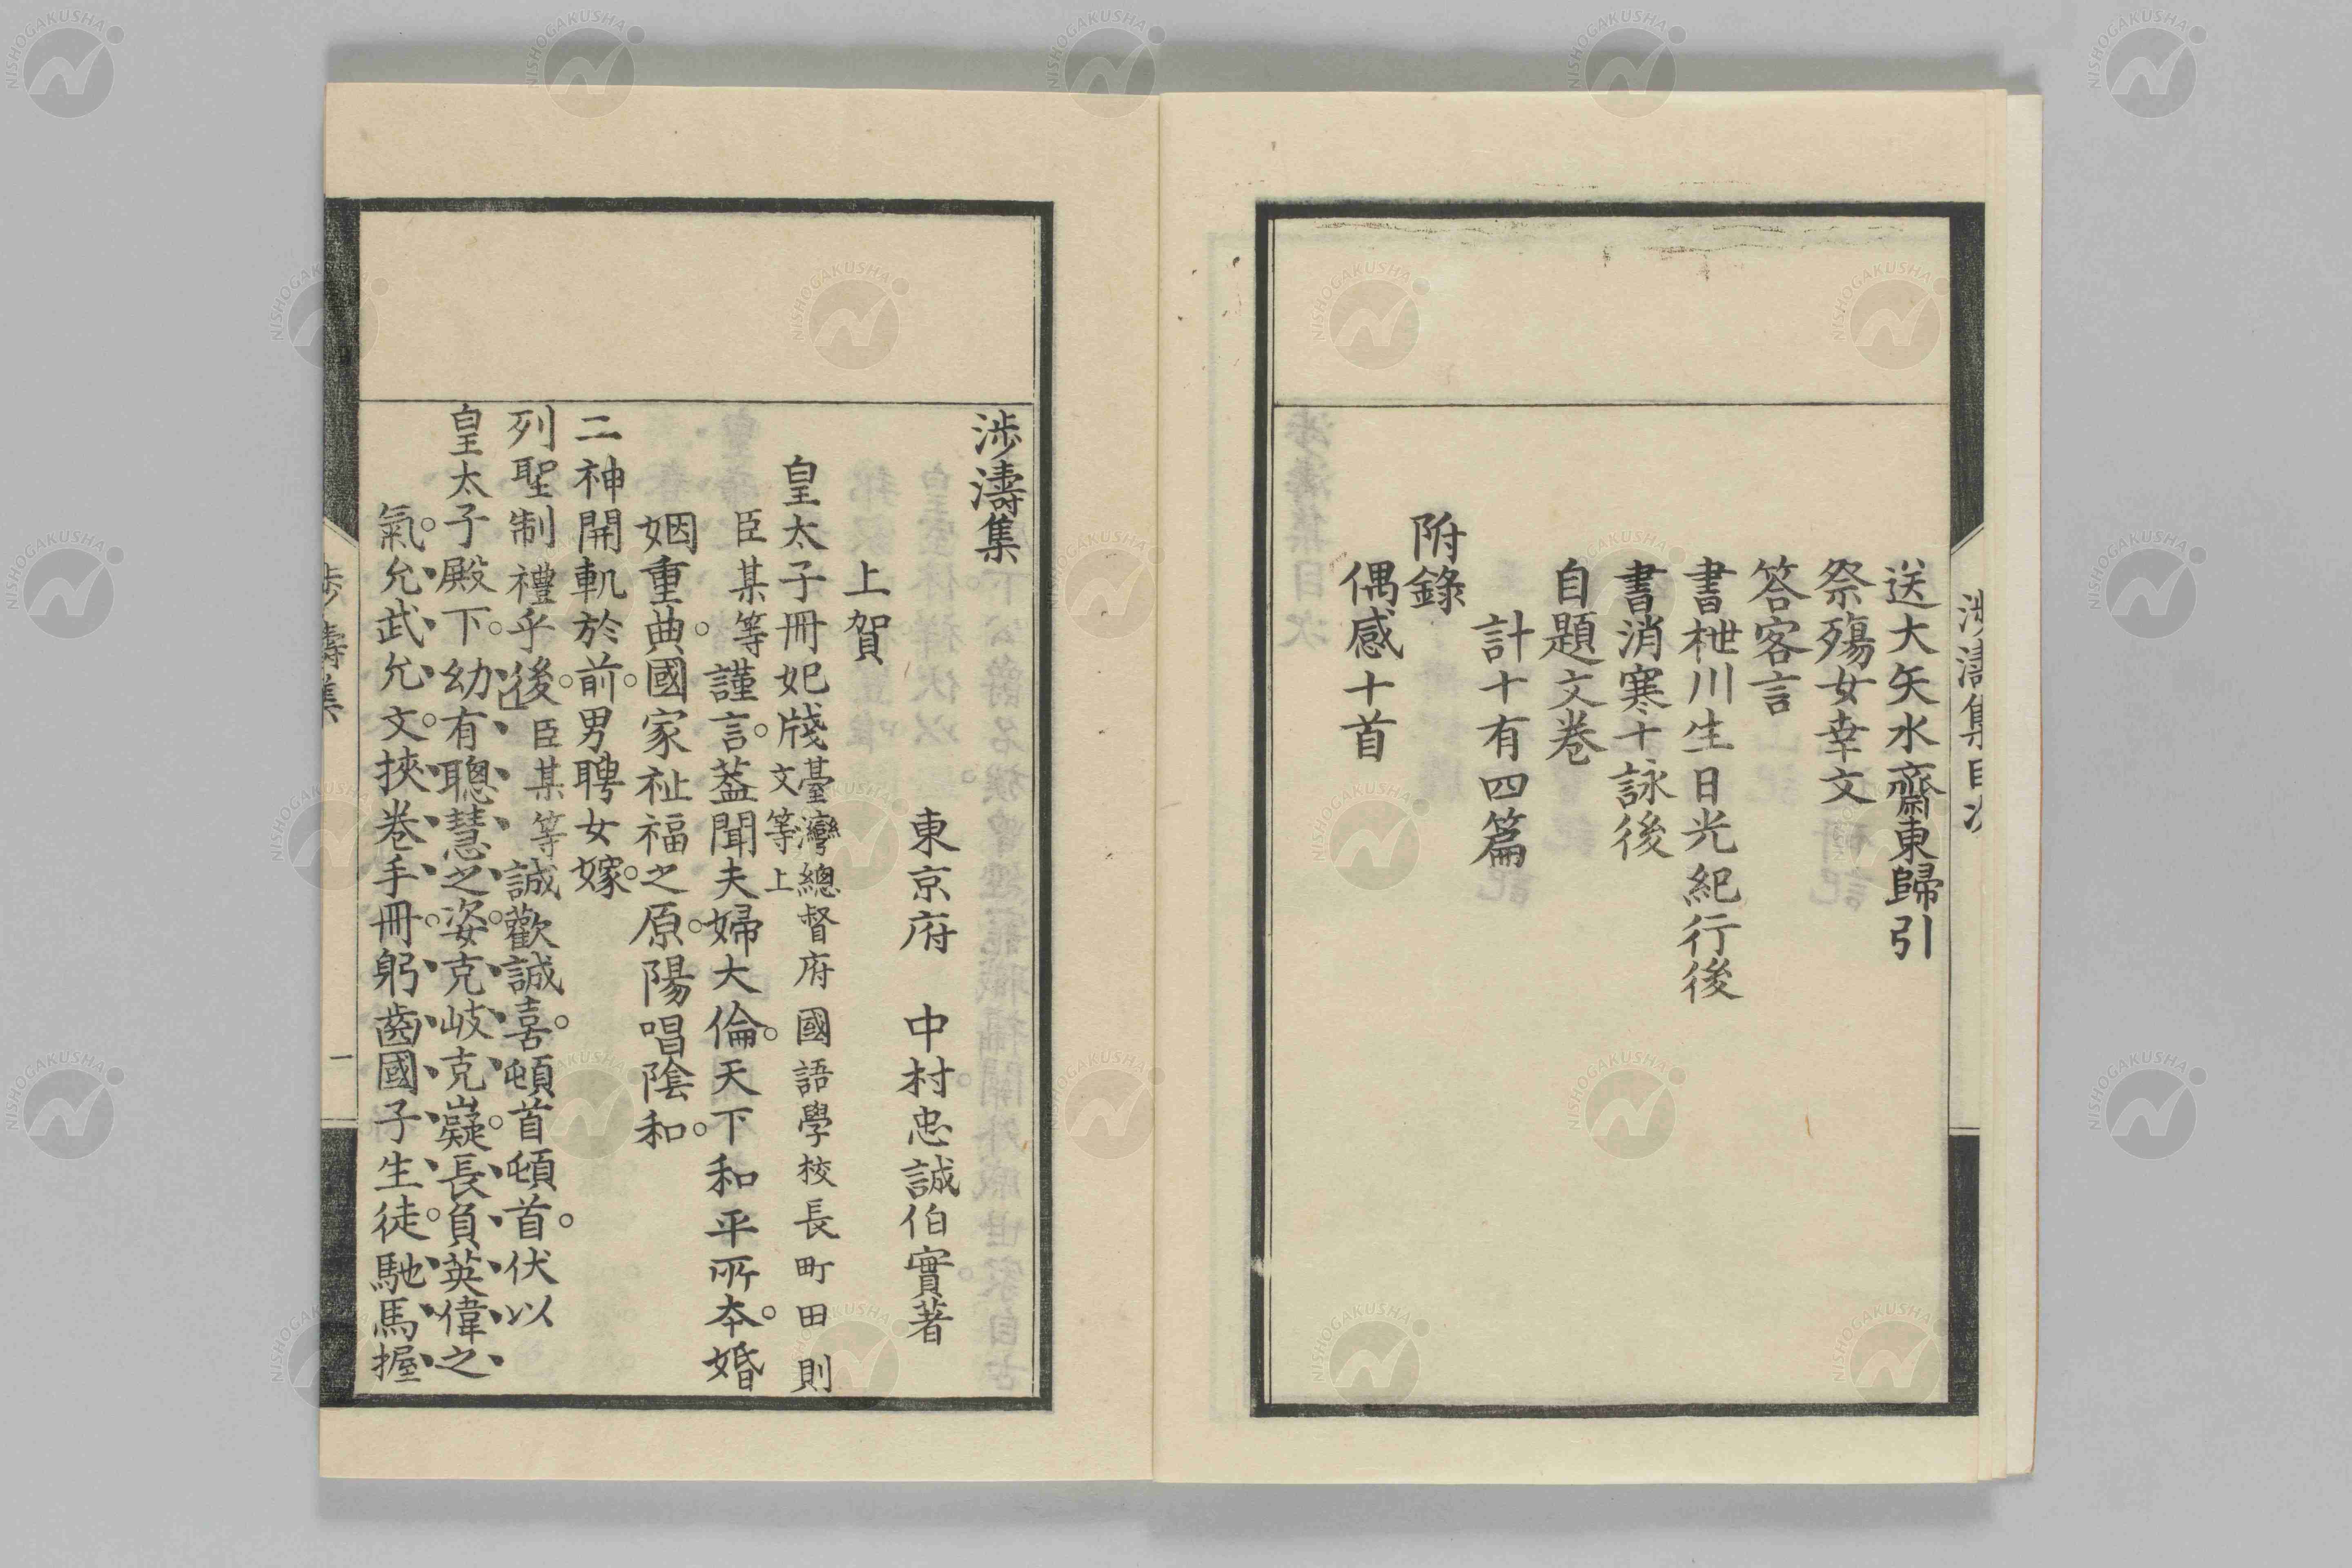 送大矢水齋東歸引
祭殤女幸文
答客言
書枻川生日光紀行後
書消寒十詠後
自題文卷
計十有四篇
附錄
偶感十首
涉濤集
東京府 中村忠誠伯實著
上賀
皇太子冊妃牋臺灣總督府國語學校長町田則文等上
臣某等謹言。蓋聞夫婦大倫。天下和平所本。婚
姻重典。國家祉福之原。陽唱陰和。
二神開軌於前。男聘女嫁。
列聖制禮乎後。臣某等誠歡誠喜。頓首頓首。伏以
皇太子殿下。幼有聰慧之姿。克岐克嶷。長負英偉之
氣。允武允文。挾卷手冊。躬齒國子生徒。馳馬握
涉濤集 一
NISHOGAKUSHA